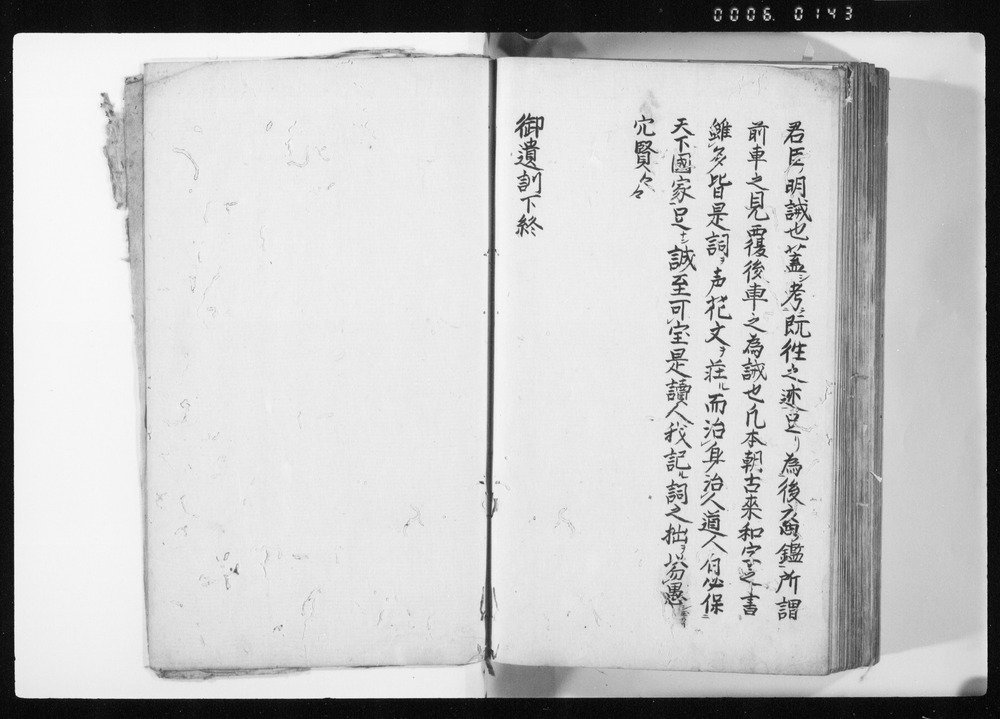 0006. 0143
君臣明誡也蓋シ考既徃之迹足リ為後鑑所謂
前車之見覆後車之為誡也凡本朝古來和字之書
雖多皆是詞ヲ声花文ヲ荘ル而治身治人道
保ニ天下國家足ナシ誠至可宝是讀人我記ル詞之拙ヲ以勿愚
賢々々
御遺訓下終